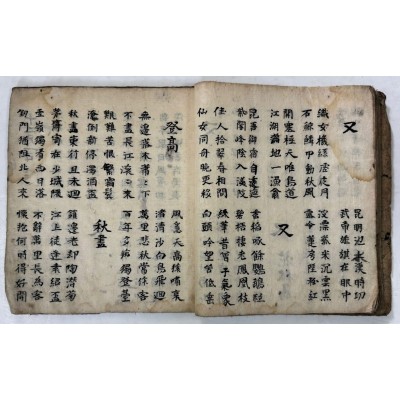 又
昆明池水漢時功
武帝旌旗在眼中
織女機絲虛夜月
石鯨鱗甲動秋風
波漂菰米沉雲黑
露冷蓮房墜粉紅
關塞極天唯鳥道
江湖滿地一漁翁
又
昆吾御宿自逶迤
閣峰陰入渼陂
香稻啄餘鸚鵡粒
碧梧棲老鳳凰枝
佳人拾翠春相問
仙女同舟晚更移
綵筆昔曾干氣象
白頭吟望苦低垂
登高
風急天高猿嘯哀
渚清沙白鳥飛迴
無邊落木蕭蕭下
不盡長江滾滾來
萬里悲秋常作客
百年多病獨登臺
艱難苦恨繁霜鬢
潦倒新停濁酒盃
秋盡
秋盡東行且未迴
茅齋寄在少城隈
籬邊老却陶潛菊
江上徒逢袁紹盃
雪嶺獨看西日落
劍門猶阻北人來
不辭萬里長為客
懷抱何時得好開